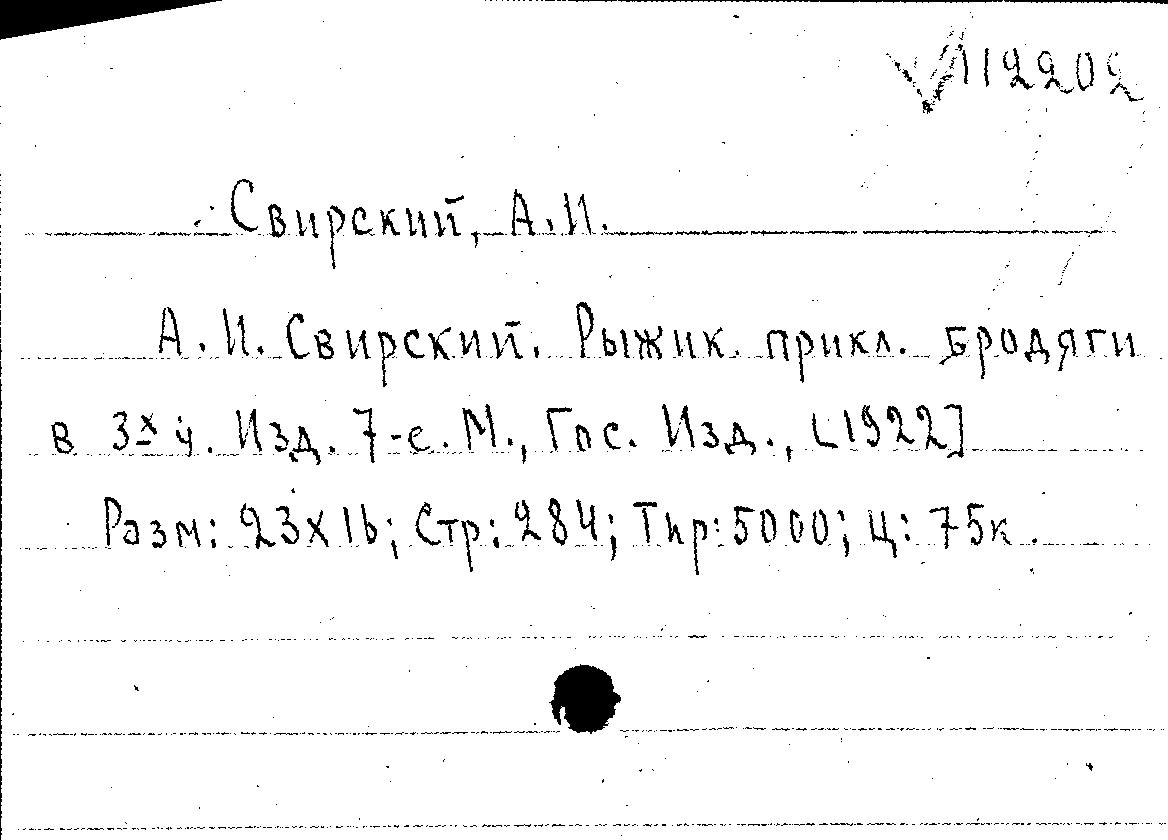 112202
Свирский, А.И.
А.И. Свирский. Рыжик. прикл. бродяги
в 3х ч. Изд. 7-е. М., Гос. Изд., [1922]
Разм: 23х16; Стр: 284; Тир: 5000; Ц: 75к.